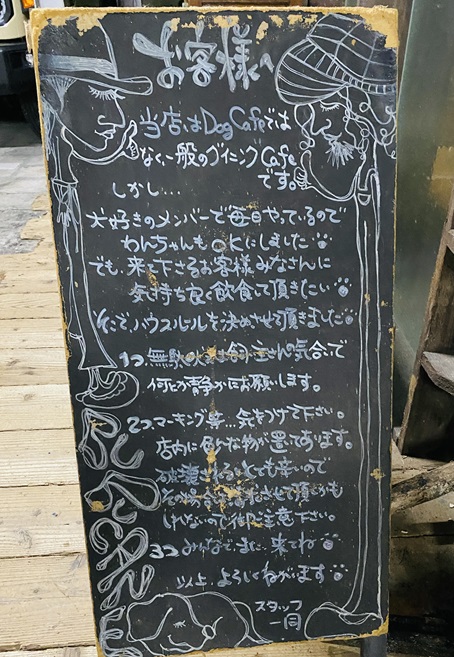 お客様へ
当店はDog Cafeでは
なく、一般のダイニングCafe
です。
しかし...
大好きのメンバーで毎日やっているので
わんちゃんもOKにしました
でも、来て下さるお客様みなさんに
気持ち良く飲食して頂きたい
そこで、ハウスルールを決めさせて頂きました
1つ 無駄吠えは飼い主さんの気合いで
何とか静かにお願いします。
2つ マーキング等...気をつけて下さい。
店内に色んな物が置いてあります。
破壊されるととても辛いので
その場合
かも
しれないので御注意下さい。
3つ みんなで 来てね
以上 よろしくねがいます
スタッフ
一同